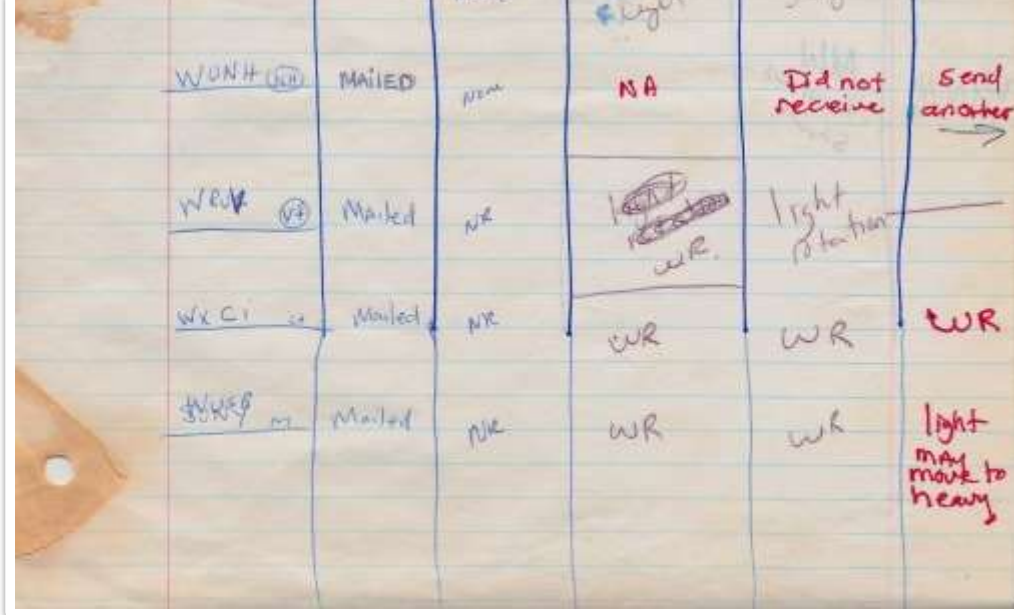 Light
WUNH NH MAiLED None NA Did not receive send another
WRUV VT Mailed NR WR. light rotation
WXCi Mailed NR WR WR WR
Mailed NR WR WR light may move to heavy